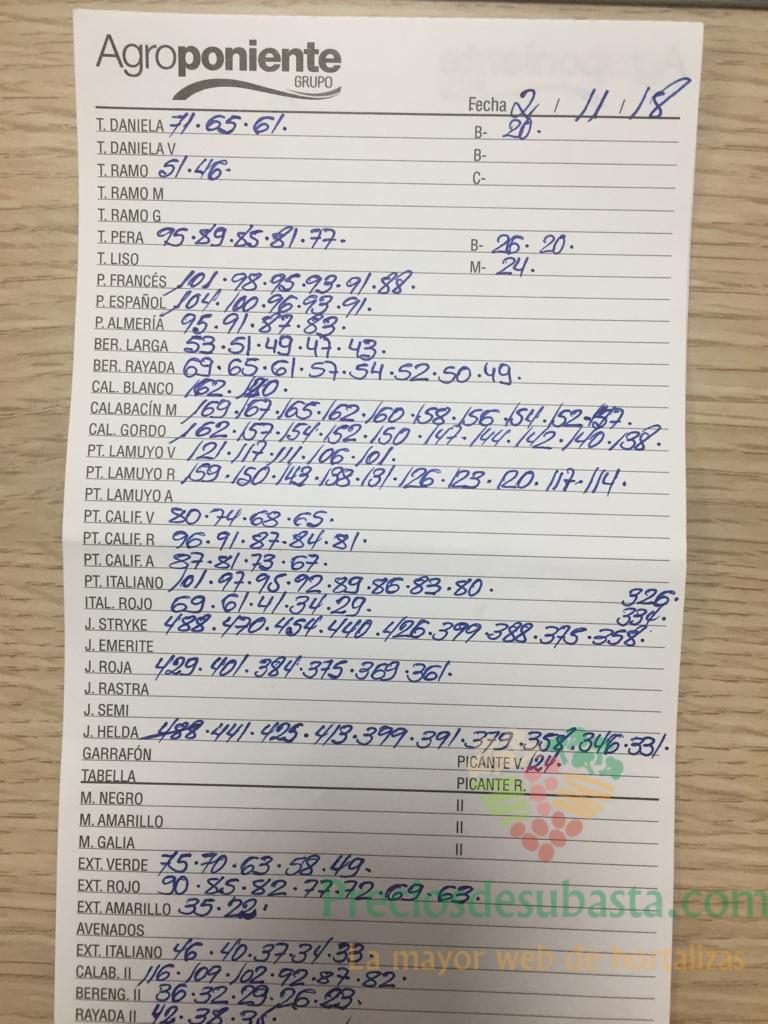 Agroponiente
GRUPO
Fecha 2 / 11 / 18
T. DANIELA 71. 65. 61. B- 20.
T. DANIELA V B-
T. RAMO 51. 46. C-
T. RAMO M
T. RAMO G
T. PERA 95. 89. 85. 81. 77. B- 26. 20.
T. LISO M- 24.
P. FRANCÉS 101. 98. 95. 93. 91. 88.
P. ESPAÑOL 104. 100. 96. 93. 91.
P. ALMERÍA 95. 91. 87. 83.
BER. LARGA 53. 51. 49. 47. 43.
BER. RAYADA 69. 65. 61. 57. 54. 52. 50. 49.
CAL. BLANCO 162.
CALABACÍN M 169. 167. 165. 162. 160. 158. 156. 154. 152.
CAL. GORDO 162. 157. 154. 152. 150. 147. 144. 142. 140. 138.
PT. LAMUYO V 121. 117. 111. 106. 101.
PT. LAMUYO R 159. 150. 143. 138. 131. 126. 123. 120. 117. 114.
PT. LAMUYO A
PT. CALIF. V 80. 74. 68. 65.
PT. CALIF. R 96. 91. 87. 84. 81.
PT. CALIF. A 87. 81. 73. 67.
PT. ITALIANO 101. 97. 95. 92. 89. 86. 83. 80.
326.
ITAL. ROJO 69. 61. 41. 34. 29. 334.
J. STRYKE 488. 470. 454. 440. 426. 399. 388. 375. 358.
J. EMERITE
J. ROJA 429. 401. 384. 375. 369. 361.
J. RASTRA
J. SEMI
J. HELDA 488. 441. 425. 413. 399. 391. 379. 358. 346. 331.
GARRAFÓN PICANTE V. 124.
TABELLA PICANTE R.
M. NEGRO II
M. AMARILLO II
M. GALIA II
EXT. VERDE 75. 70. 63. 58. 49.
EXT. ROJO 90. 85. 82. 77. 72. 69. 63.
Preciosdesubasta.com
EXT. AMARILLO 35. 22.
AVENADOS
EXT. ITALIANO 46. 40. 37. 34.
La mayor web de hortalizas
CALAB. II 116. 109. 102. 92. 87. 82.
BERENG. II 36. 32. 29. 26. 23.
RAYADA II 42. 38.